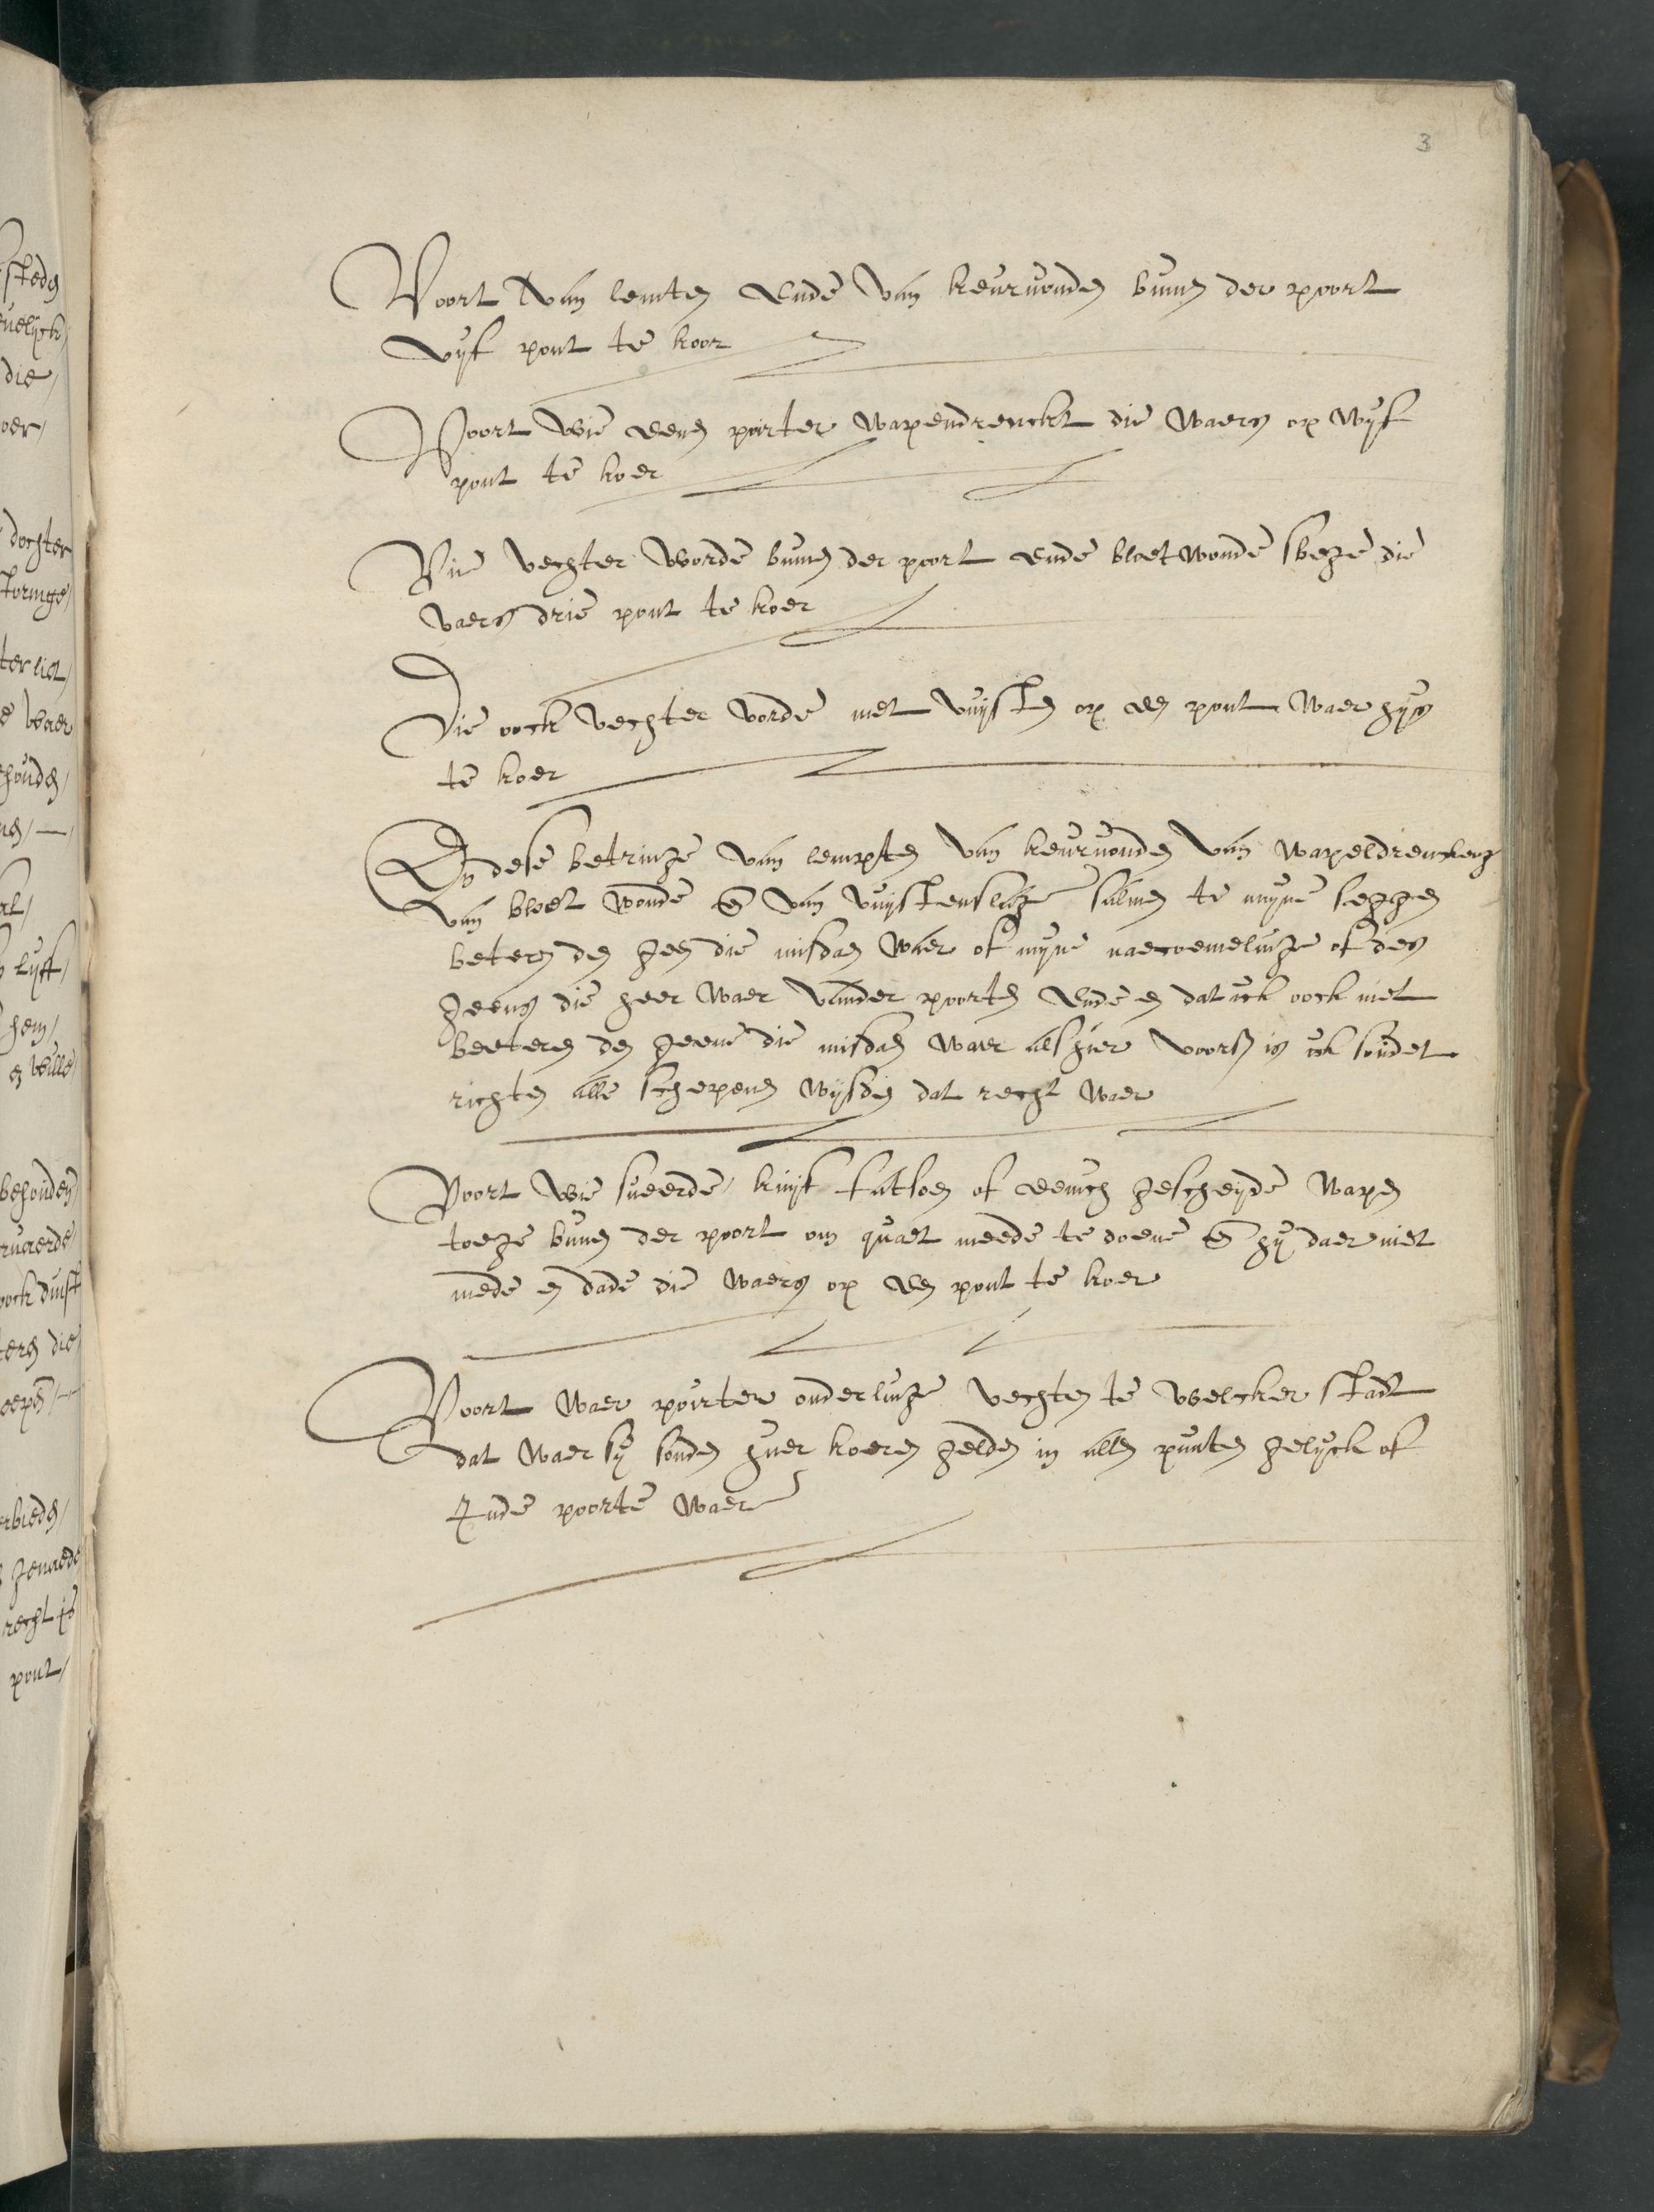 3
Voort van lemten ende van keurwonden binnen der poort
vijf pont te koor
Voort wie eenen poirter wapendrenckt die waers op vijf
pont te koer
Wie vechter worde binnen der poort ende bloetwonde sloege die
waers drie pont te koer
Die oock vechter worde met vuijsten op een pont waer hijs
te koer
dese beteringe van lempten van keurwonden van wapeldrenckeng
van bloet wonde en van vuijstenslage salmen te mijne seggen
beteren den geen die misdaen waer of mijne naecoemelinge of des
geens die heer waer vander poorten ende en dat ick oock niet
beeteren den geene die misdaen waer als hier voors is ick soudet
richten alle schepenen wijsden dat recht waer
Voort wie sweerde, knijf fatsoen of eenich gescheijde wapen
toege binnen der poort om quaet meede te doene en hij daer niet
mede en dade die waers op een pont te koer
Voort waer poirter onderlinge vechten te welcker stadt
dat waer sij souden huer koeren gelden in allen punten gelijck of
Inde poorte waer
stede
velijck
die
oer
dochter
toringe
ter liet
waer
houden
al
lijff
hem
en wille
behouden
rvaerde
oock duijst
ters die
oepen
rbieden
genaede
recht is
pont